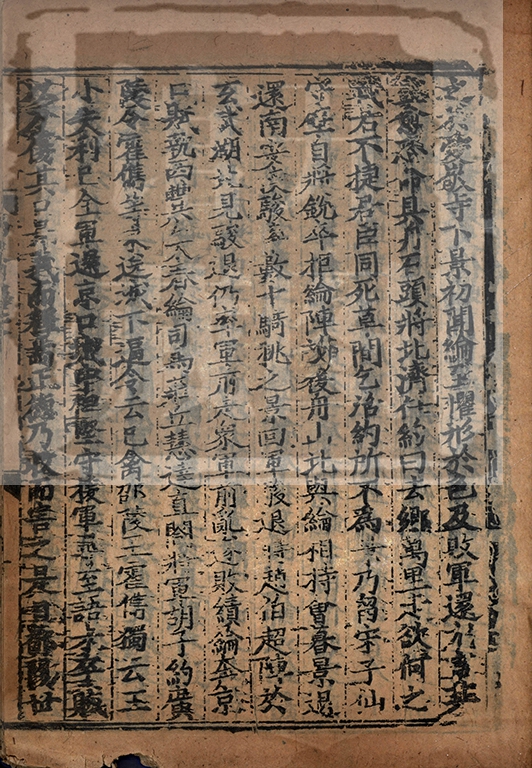 愛敬寺下景初聞綸至懼形於色及敗軍還尤言其
愈恐命具舟石頭將北濟任約曰去鄉萬里走欲何之
戰若不捷君臣同死草間乞活約所不為景乃留宋子仙
守壁自將銳卒拒綸陣於覆舟山北與綸相持會暮景退
還南安侯駿率數十騎挑之景回軍駿退時趙伯超陣於
玄武湖北見駿退仍率軍前走眾軍前亂遂敗績綸奔京
口賊執西豐公大春綸司馬莊丘慧達直閤將軍胡子約廣
陵令霍儁等來送城下逼令云已禽邵陵王霍儁獨云王
小失利已全軍還京口城中但堅守援軍尋至語未卒賊
以刀傷其口景義而釋焉正德乃收而害之是日鄱陽世